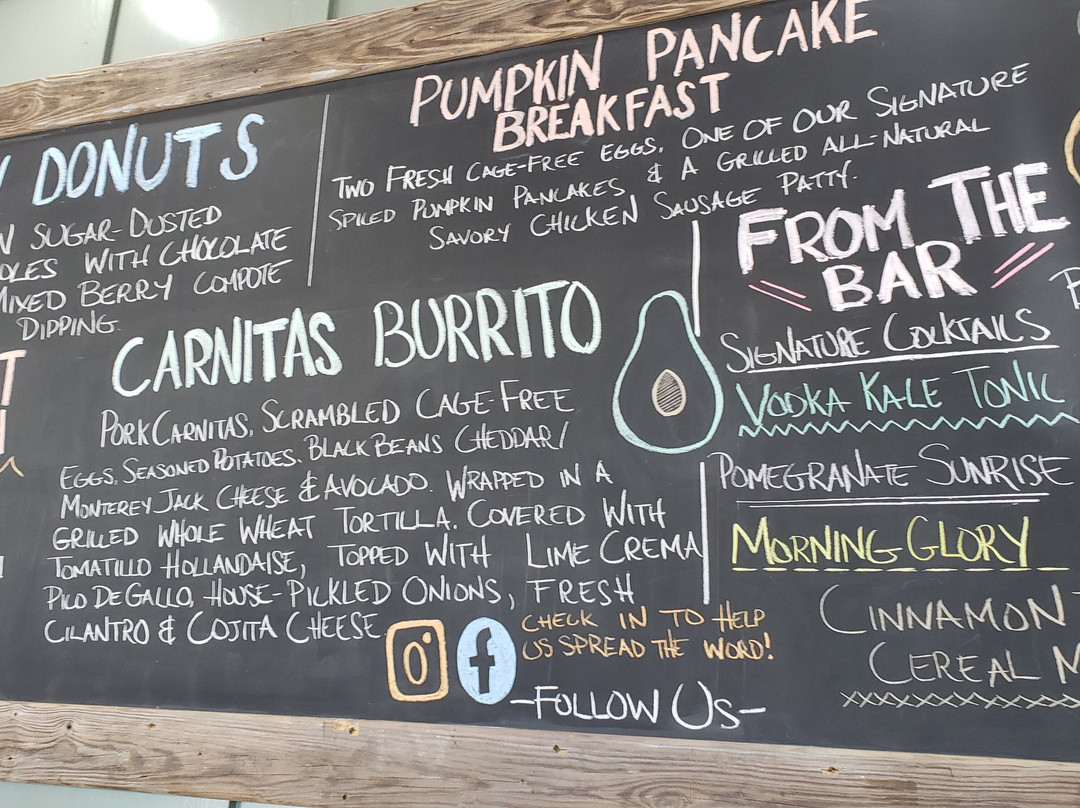 DONUTS
SUGAR-DUSTED
WITH CHOCOLATE
MIXED BERRY COMPOTE
DIPPING.
PUMPKIN PANCAKE
BREAKFAST
TWO FRESH CAGE-FREE EGGS, ONE OF OUR SIGNATURE
SPICED PUMPKIN PANCAKES & A GRILLED ALL-NATURAL
SAVORY CHICKEN SAUSAGE PATTY.
CARNITAS BURRITO
PORK CARNITAS, SCRAMBLED CAGE-FREE
EGGS, SEASONED POTATOES, BLACK BEANS CHEDDAR/
MONTEREY JACK CHEESE & AVOCADO. WRAPPED IN A
GRILLED WHOLE WHEAT TORTILLA. COVERED WITH
TOMATILLO HOLLANDAISE, TOPPED WITH LIME CREMA
PICO DE GALLO, HOUSE-PICKLED ONIONS, FRESH
CILANTRO & COJITA CHEESE
f
CHECK IN TO HELP
US SPREAD THE WORD!
-FOLLOW US-
FROM THE
BAR
SIGNATURE COCKTAILS
VODKA KALE TONIC
POMEGRANATE SUNRISE
MORNING GLORY
CINNAMON
CEREAL M